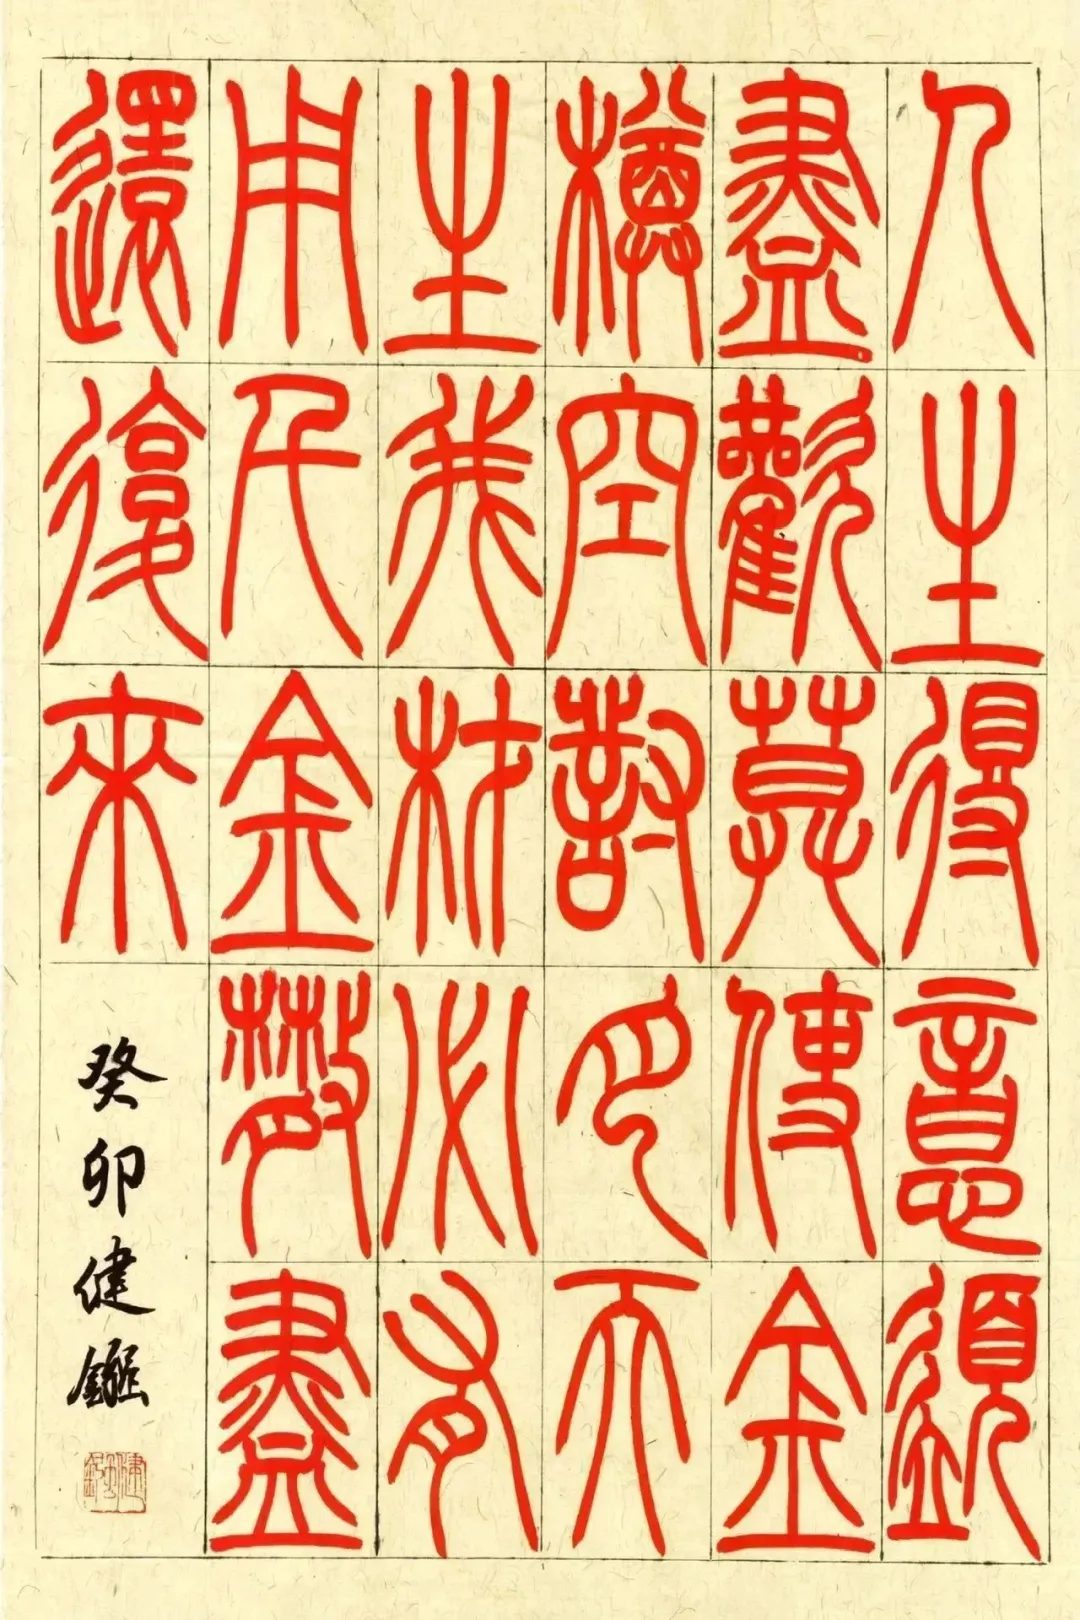 人生得意須
盡歡莫使金
樽空對月天
生我材必有
用千金散盡
還復來
癸卯健